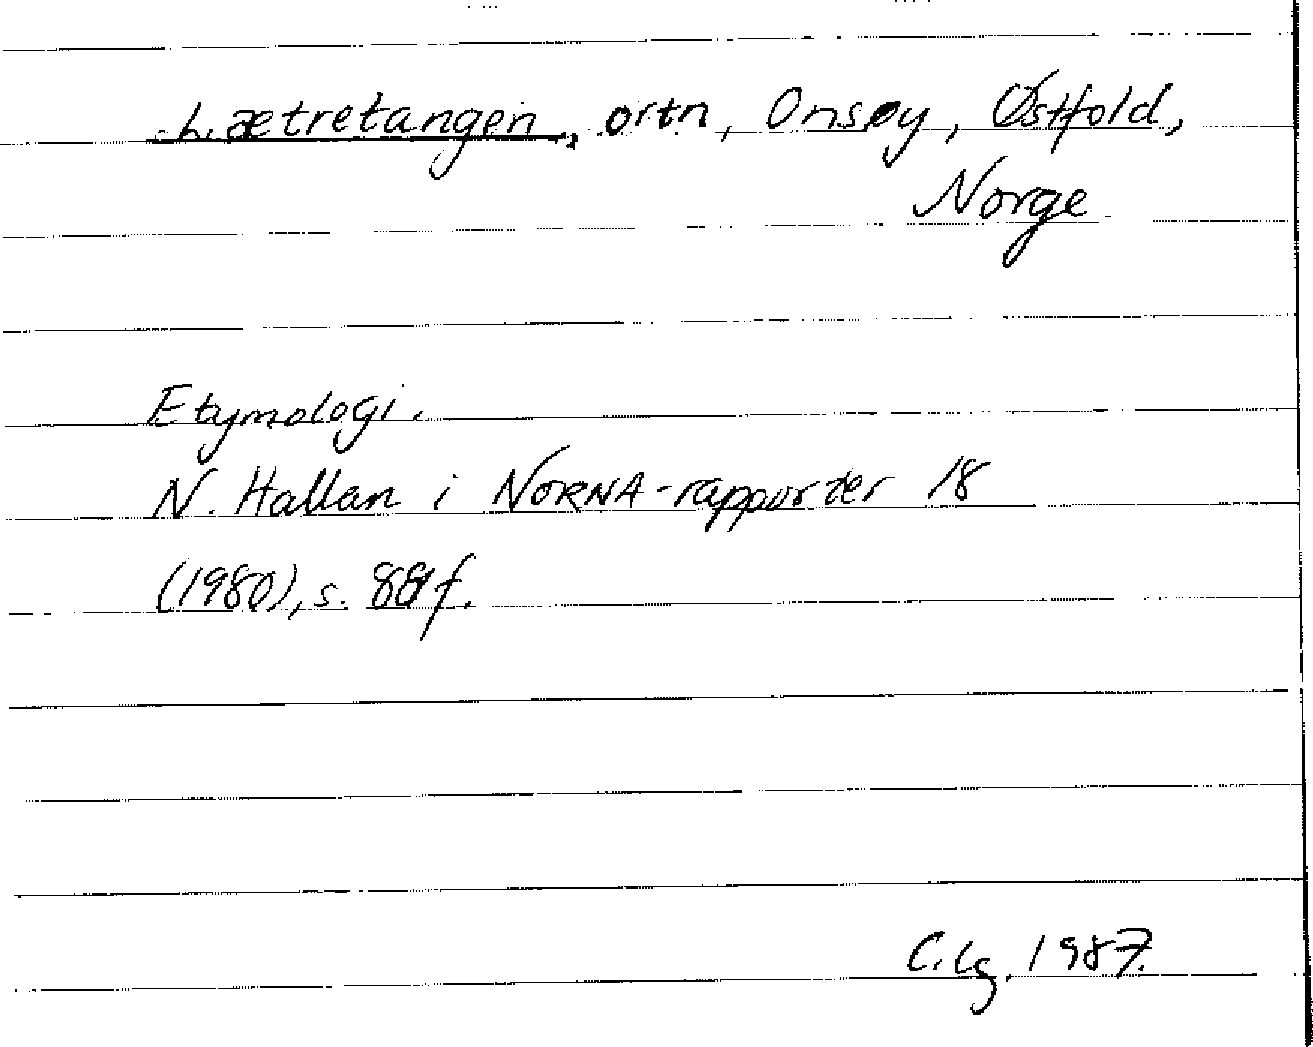 Lætretangen, ortn, Onsøy, Østfold,
Norge
Etymologi.
N. Hallan i NORNA-rapporter 18
(1980), s. f.
1987.